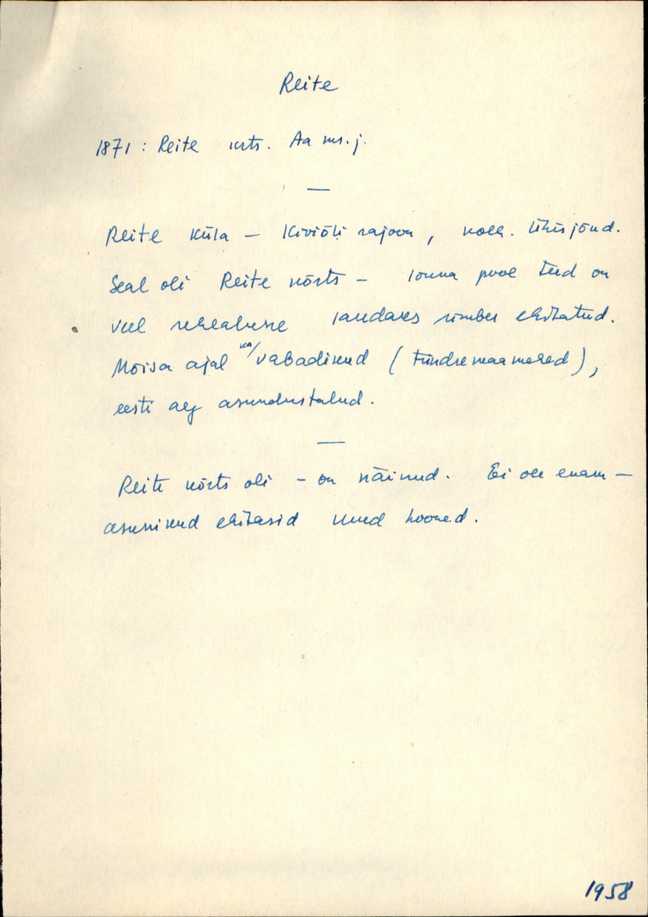 Reite
1871: Reite krts. Aa ms. j.
—
Reite küla – Kiviõli rajoon, kolh. Ühisjõud.
Seal oli Reite kõrts – lõuna pool teed on
veel rehealuse laudaks ümber ehitatud.
Mõisa ajal ka/ vabadikud (tündremaamehed),
eesti aeg asundustalud.
—
Reite kõrts oli – on näinud. Ei ole enam –
asunikud ehitasid uued hooned.
1958